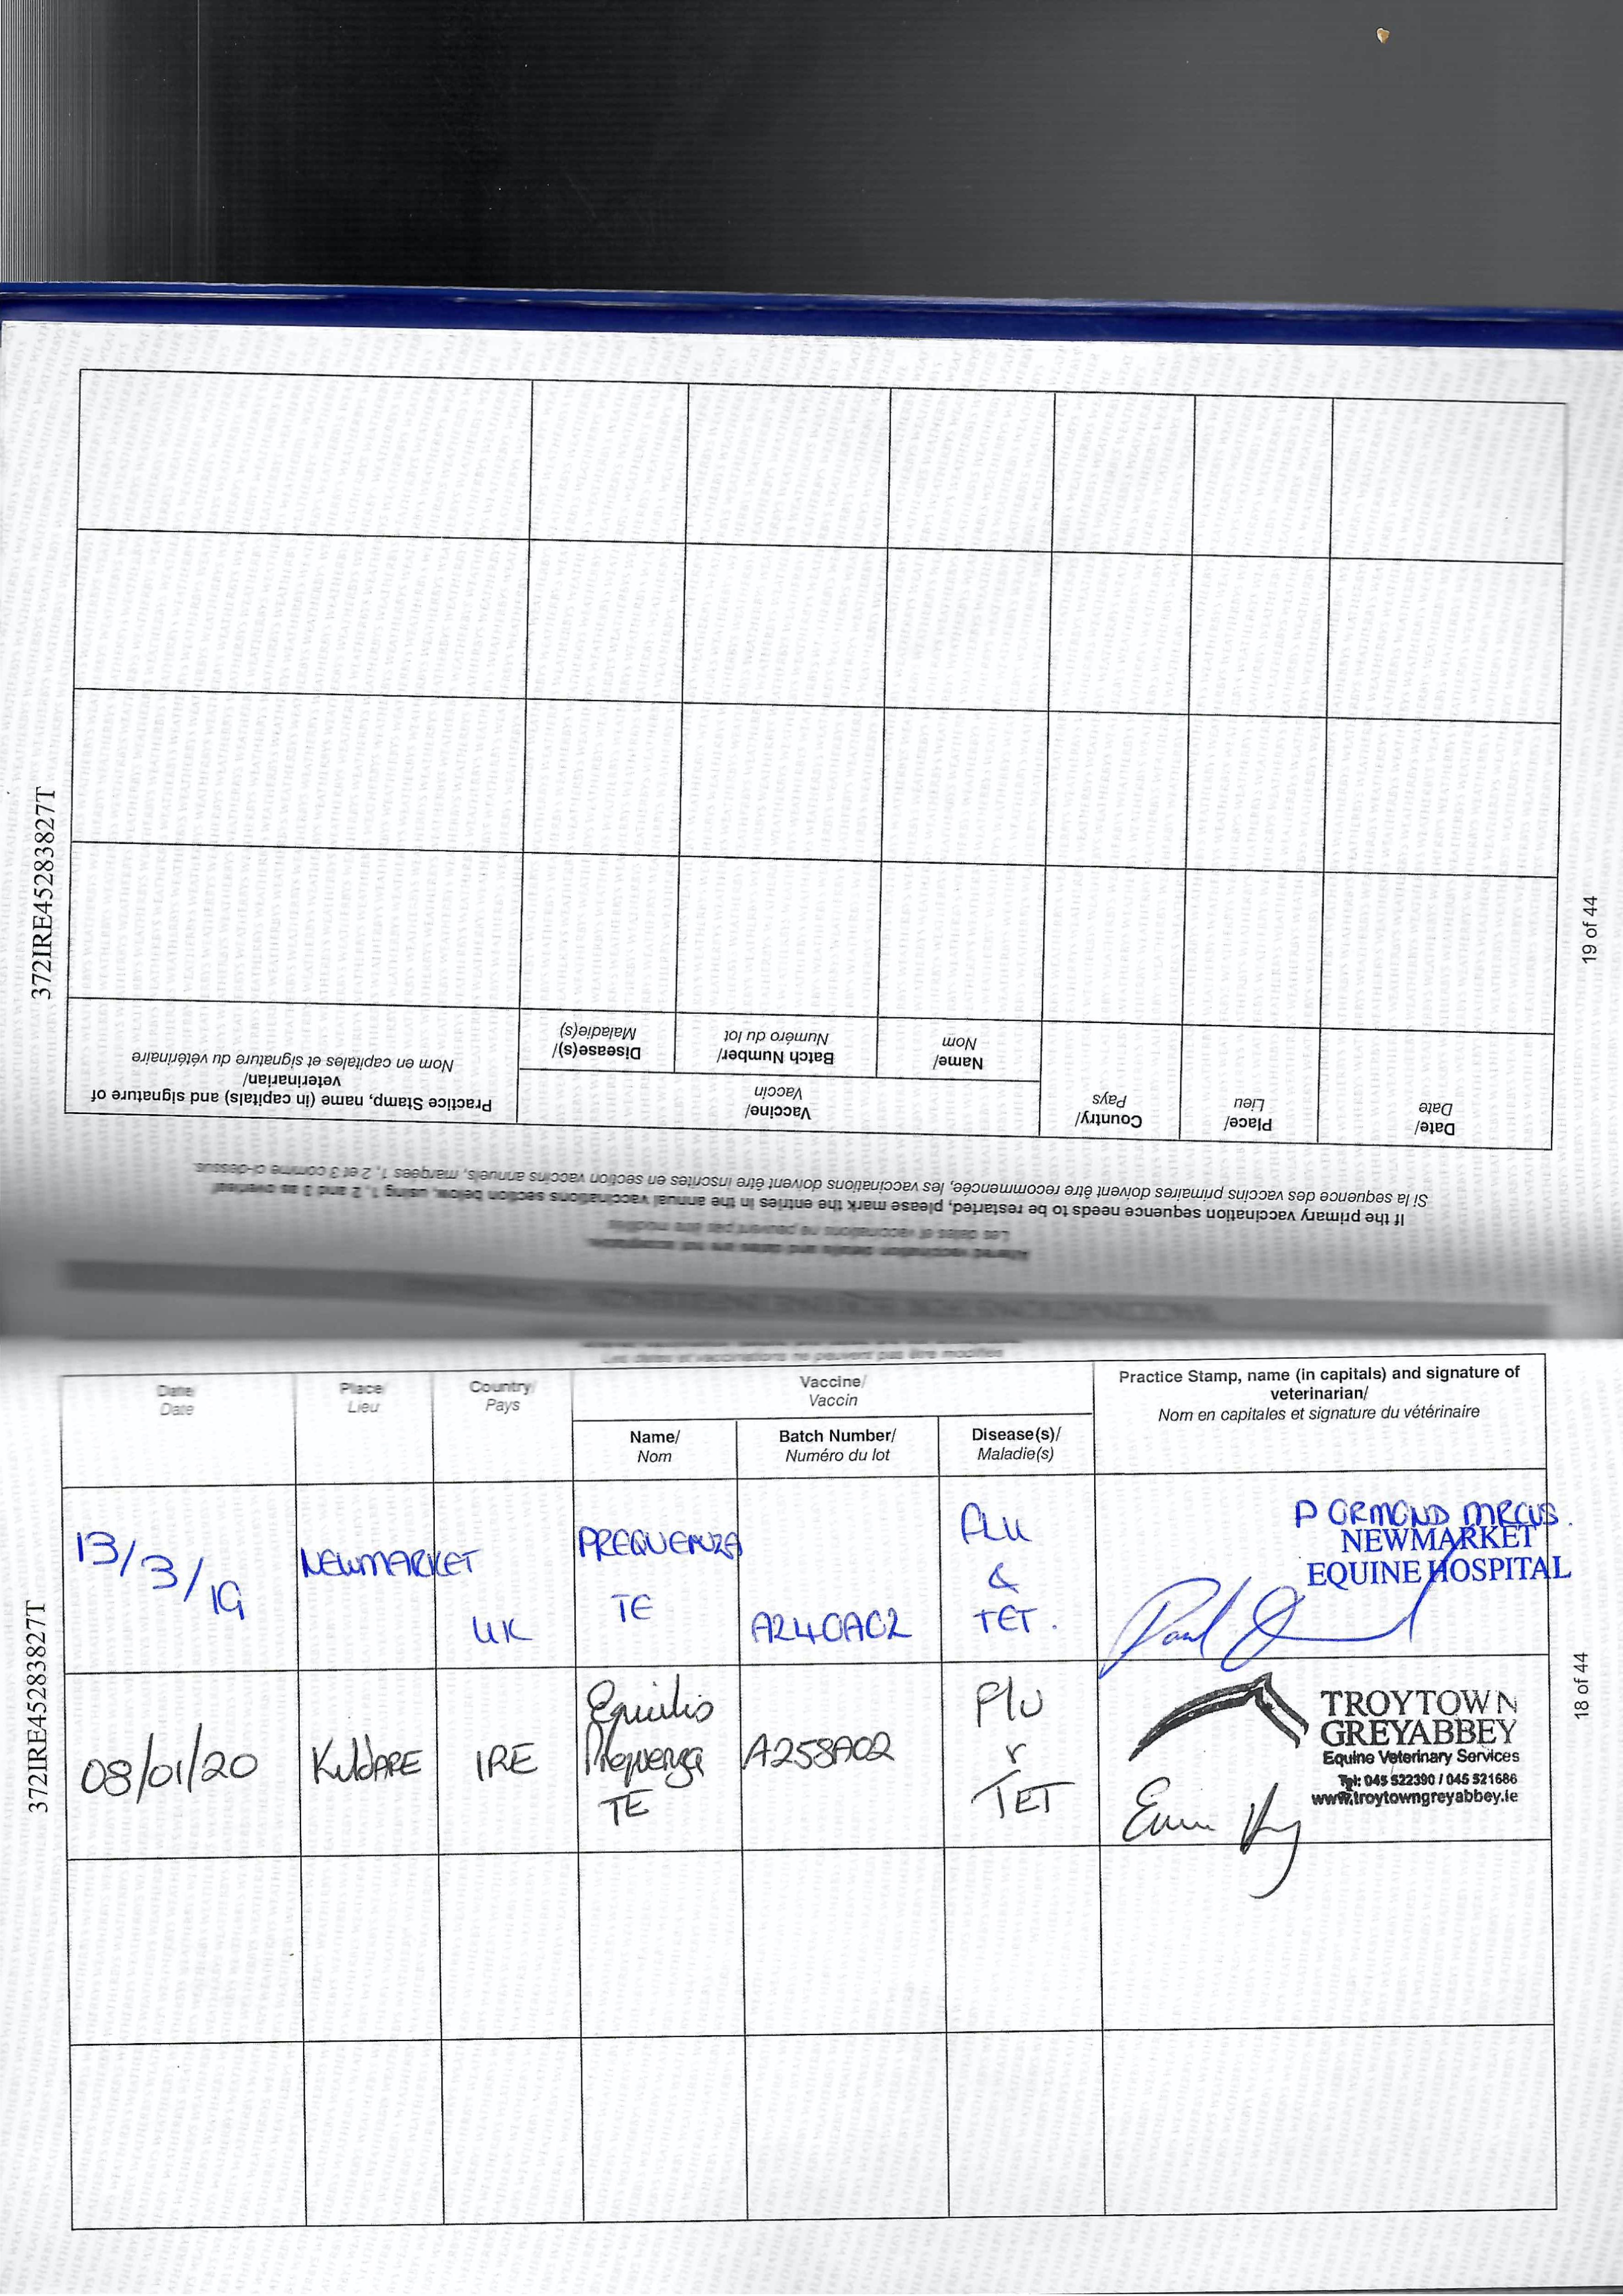 372IRE45283827T
19 of 44
Altered vaccination details and dates are not acceptable
Les dates et vaccinations ne peuvent pas être modifiés
If the primary vaccination sequence needs to be restarted, please mark the entries in the annual vaccinations section below, using 1, 2 and 3 as overleaf
Si la sequence des vaccins primaires doivent être recommencée, les vaccinations doivent être inscrites en section vaccins annuels, margées 1, 2 et 3 comme ci-dessus.
Date/
Date
Place/
Lieu
Country/
Pays
Vaccine/
Vaccin
Name/
Nom
Batch Number/
Numéro du lot
Disease(s)/
Maladie(s)
Practice Stamp, name (in capitals) and signature of
veterinarian/
Nom en capitales et signature du vétérinaire
Les dates et vaccinations ne peuvent pas être modifiés
372IRE45283827T
18 of 44
Date/
Date
Place/
Lieu
Country/
Pays
Vaccine/
Vaccin
Name/
Nom
Batch Number/
Numéro du lot
Disease(s)/
Maladie(s)
Practice Stamp, name (in capitals) and signature of
veterinarian/
Nom en capitales et signature du vétérinaire
13/3/19
NEWMARKET
UK
PREQUENZA
TE
A240A02
FLU
&
TET.
P ORMOND MRCVS.
NEWMARKET
EQUINE HOSPITAL
08/01/20
KILDARE
IRE
Equilis
Prequenza
TE
A258A02
Flu
TET
TROYTOWN
GREYABBEY
Equine Veterinary Services
Tel: 045 522390 / 045 521686
www.troytowngreyabbey.ie